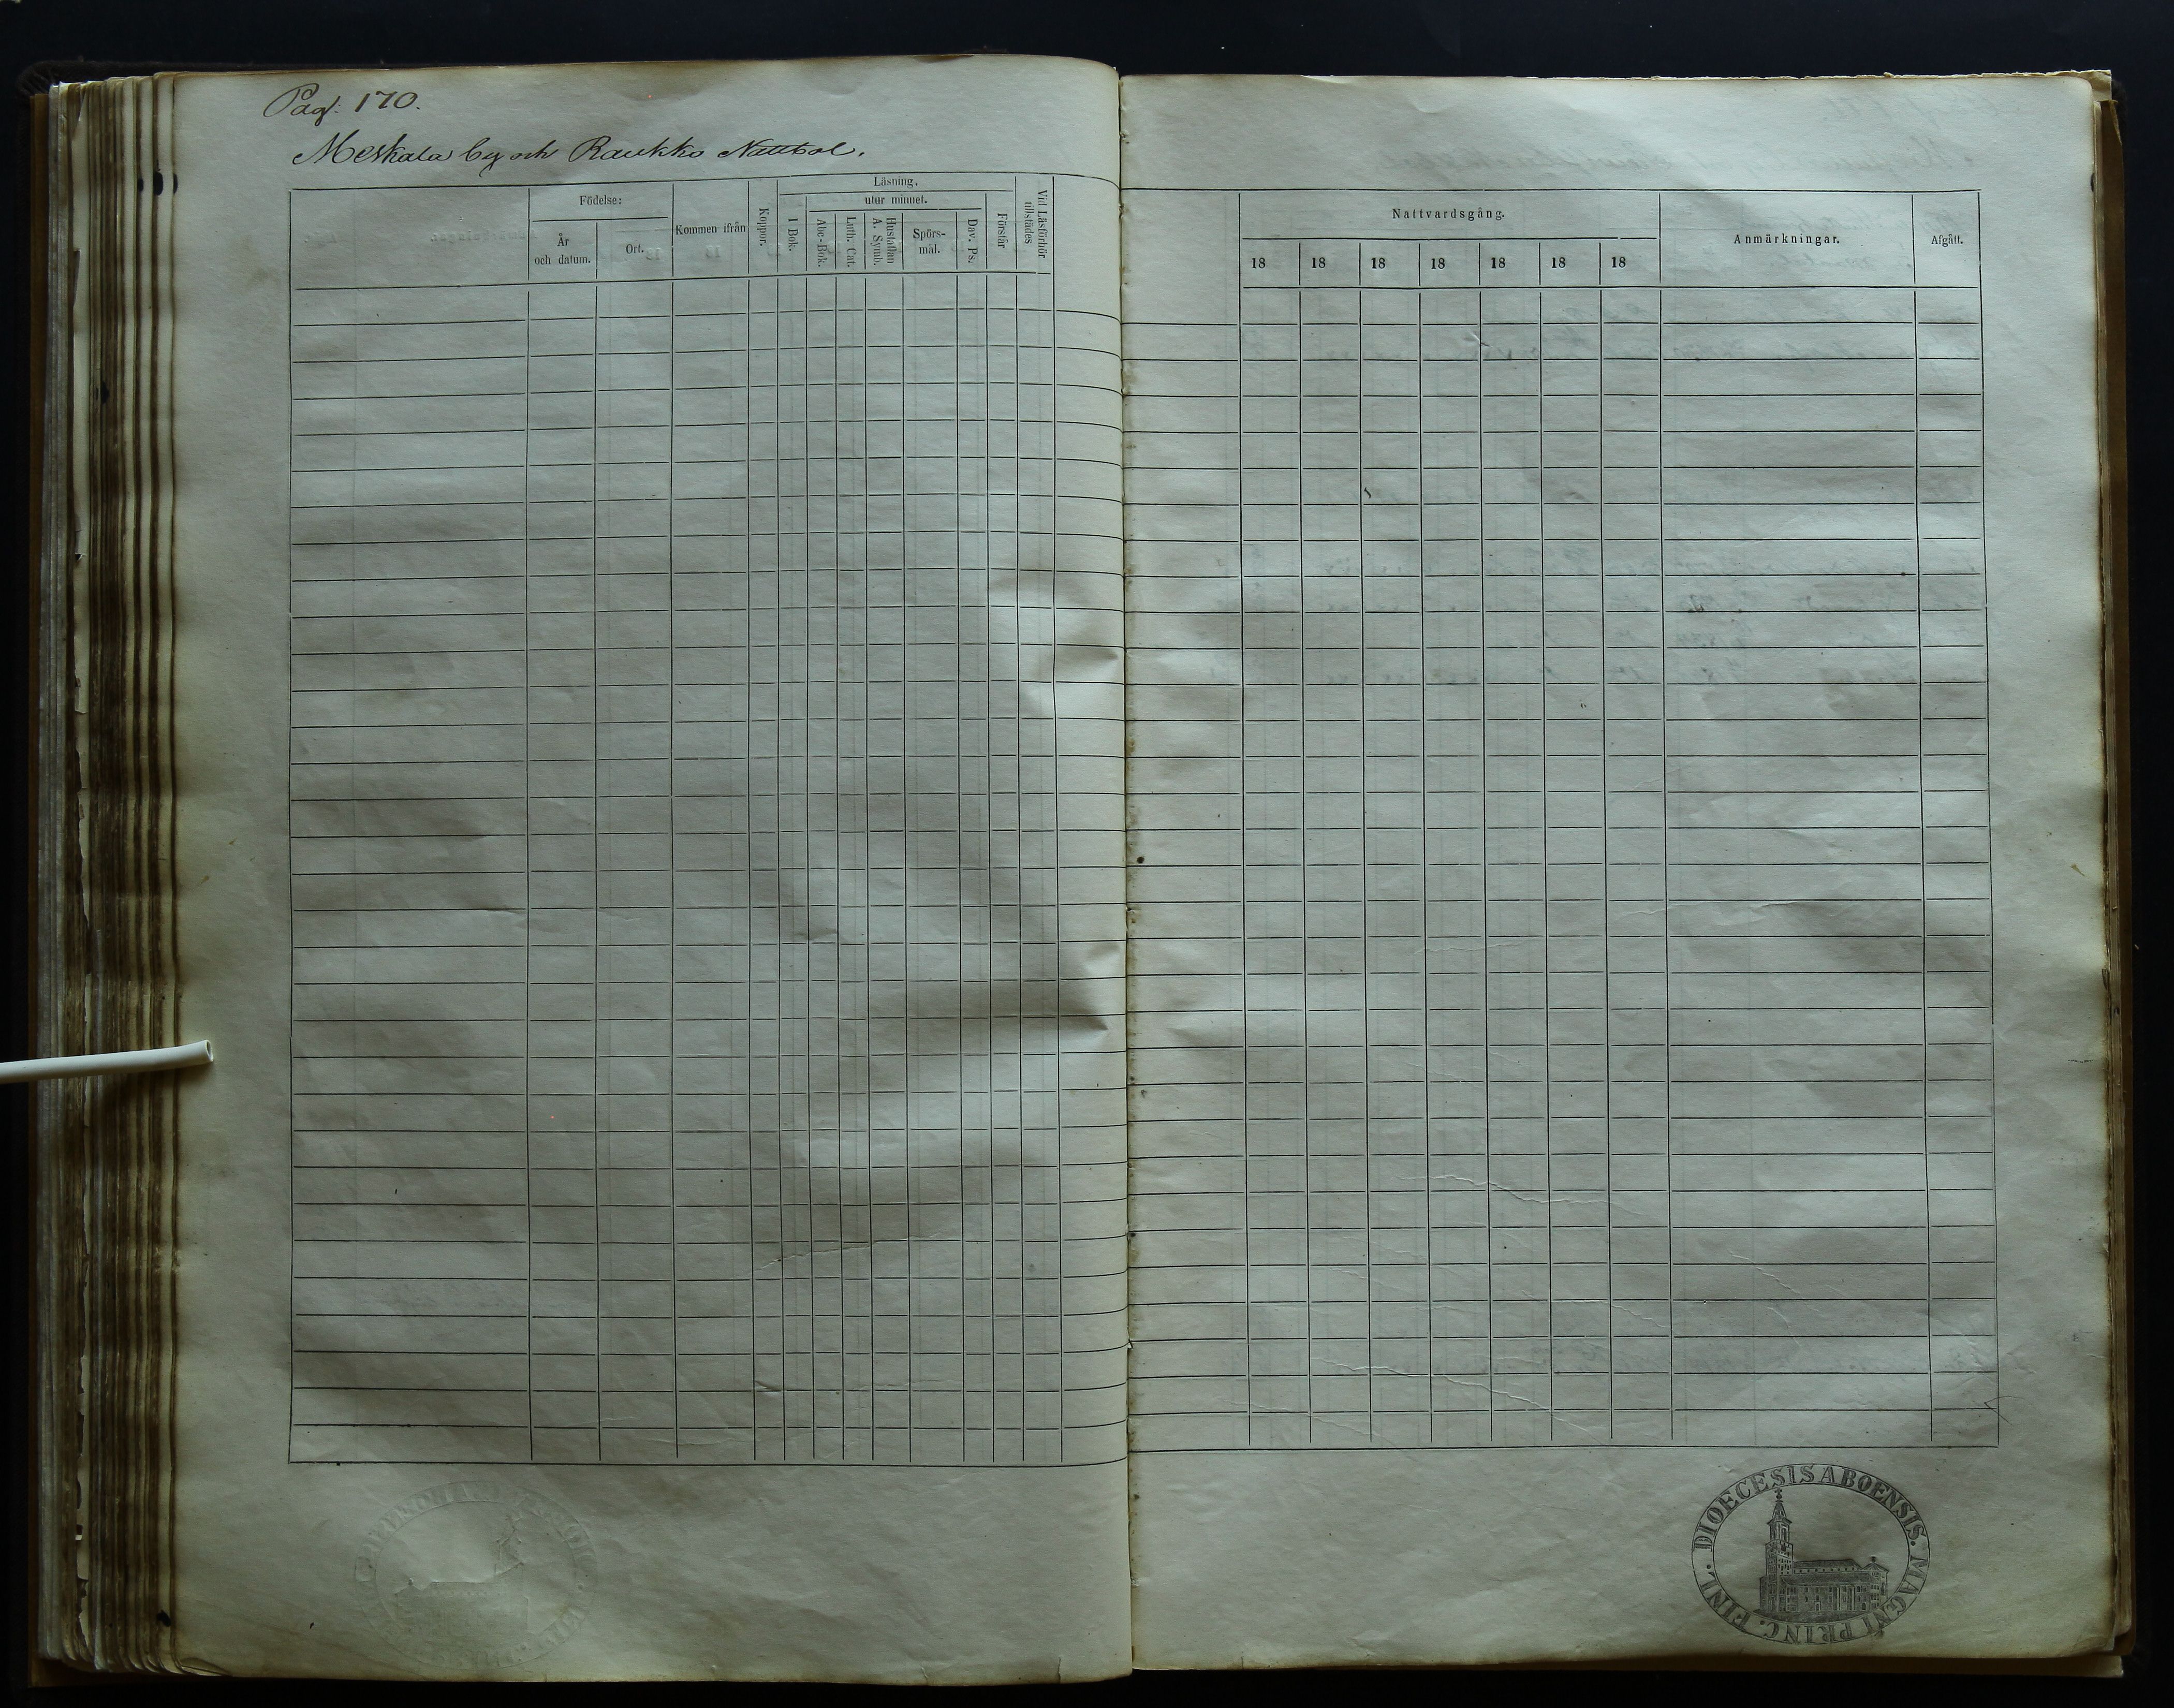 Pag: 170.
Meskala by och Raukko Nattbol.
Födelse:
År
och datum.
Ort.
Kommen ifrån
Koppor.
Läsning.
I Bok.
utur minnet.
Abc-Bok.
Luth. Cat.
Hustaflan
A. Symb.
Spörs-
mål.
Dav. Ps.
Förstår
Vid Läsförhör
tillstädes
Nattvardsgång.
18 18 18 18 18 18 18
Anmärkningar.
Afgått.
DIOECESIS ABOENSIS. MAGNI PRINC. FINL.